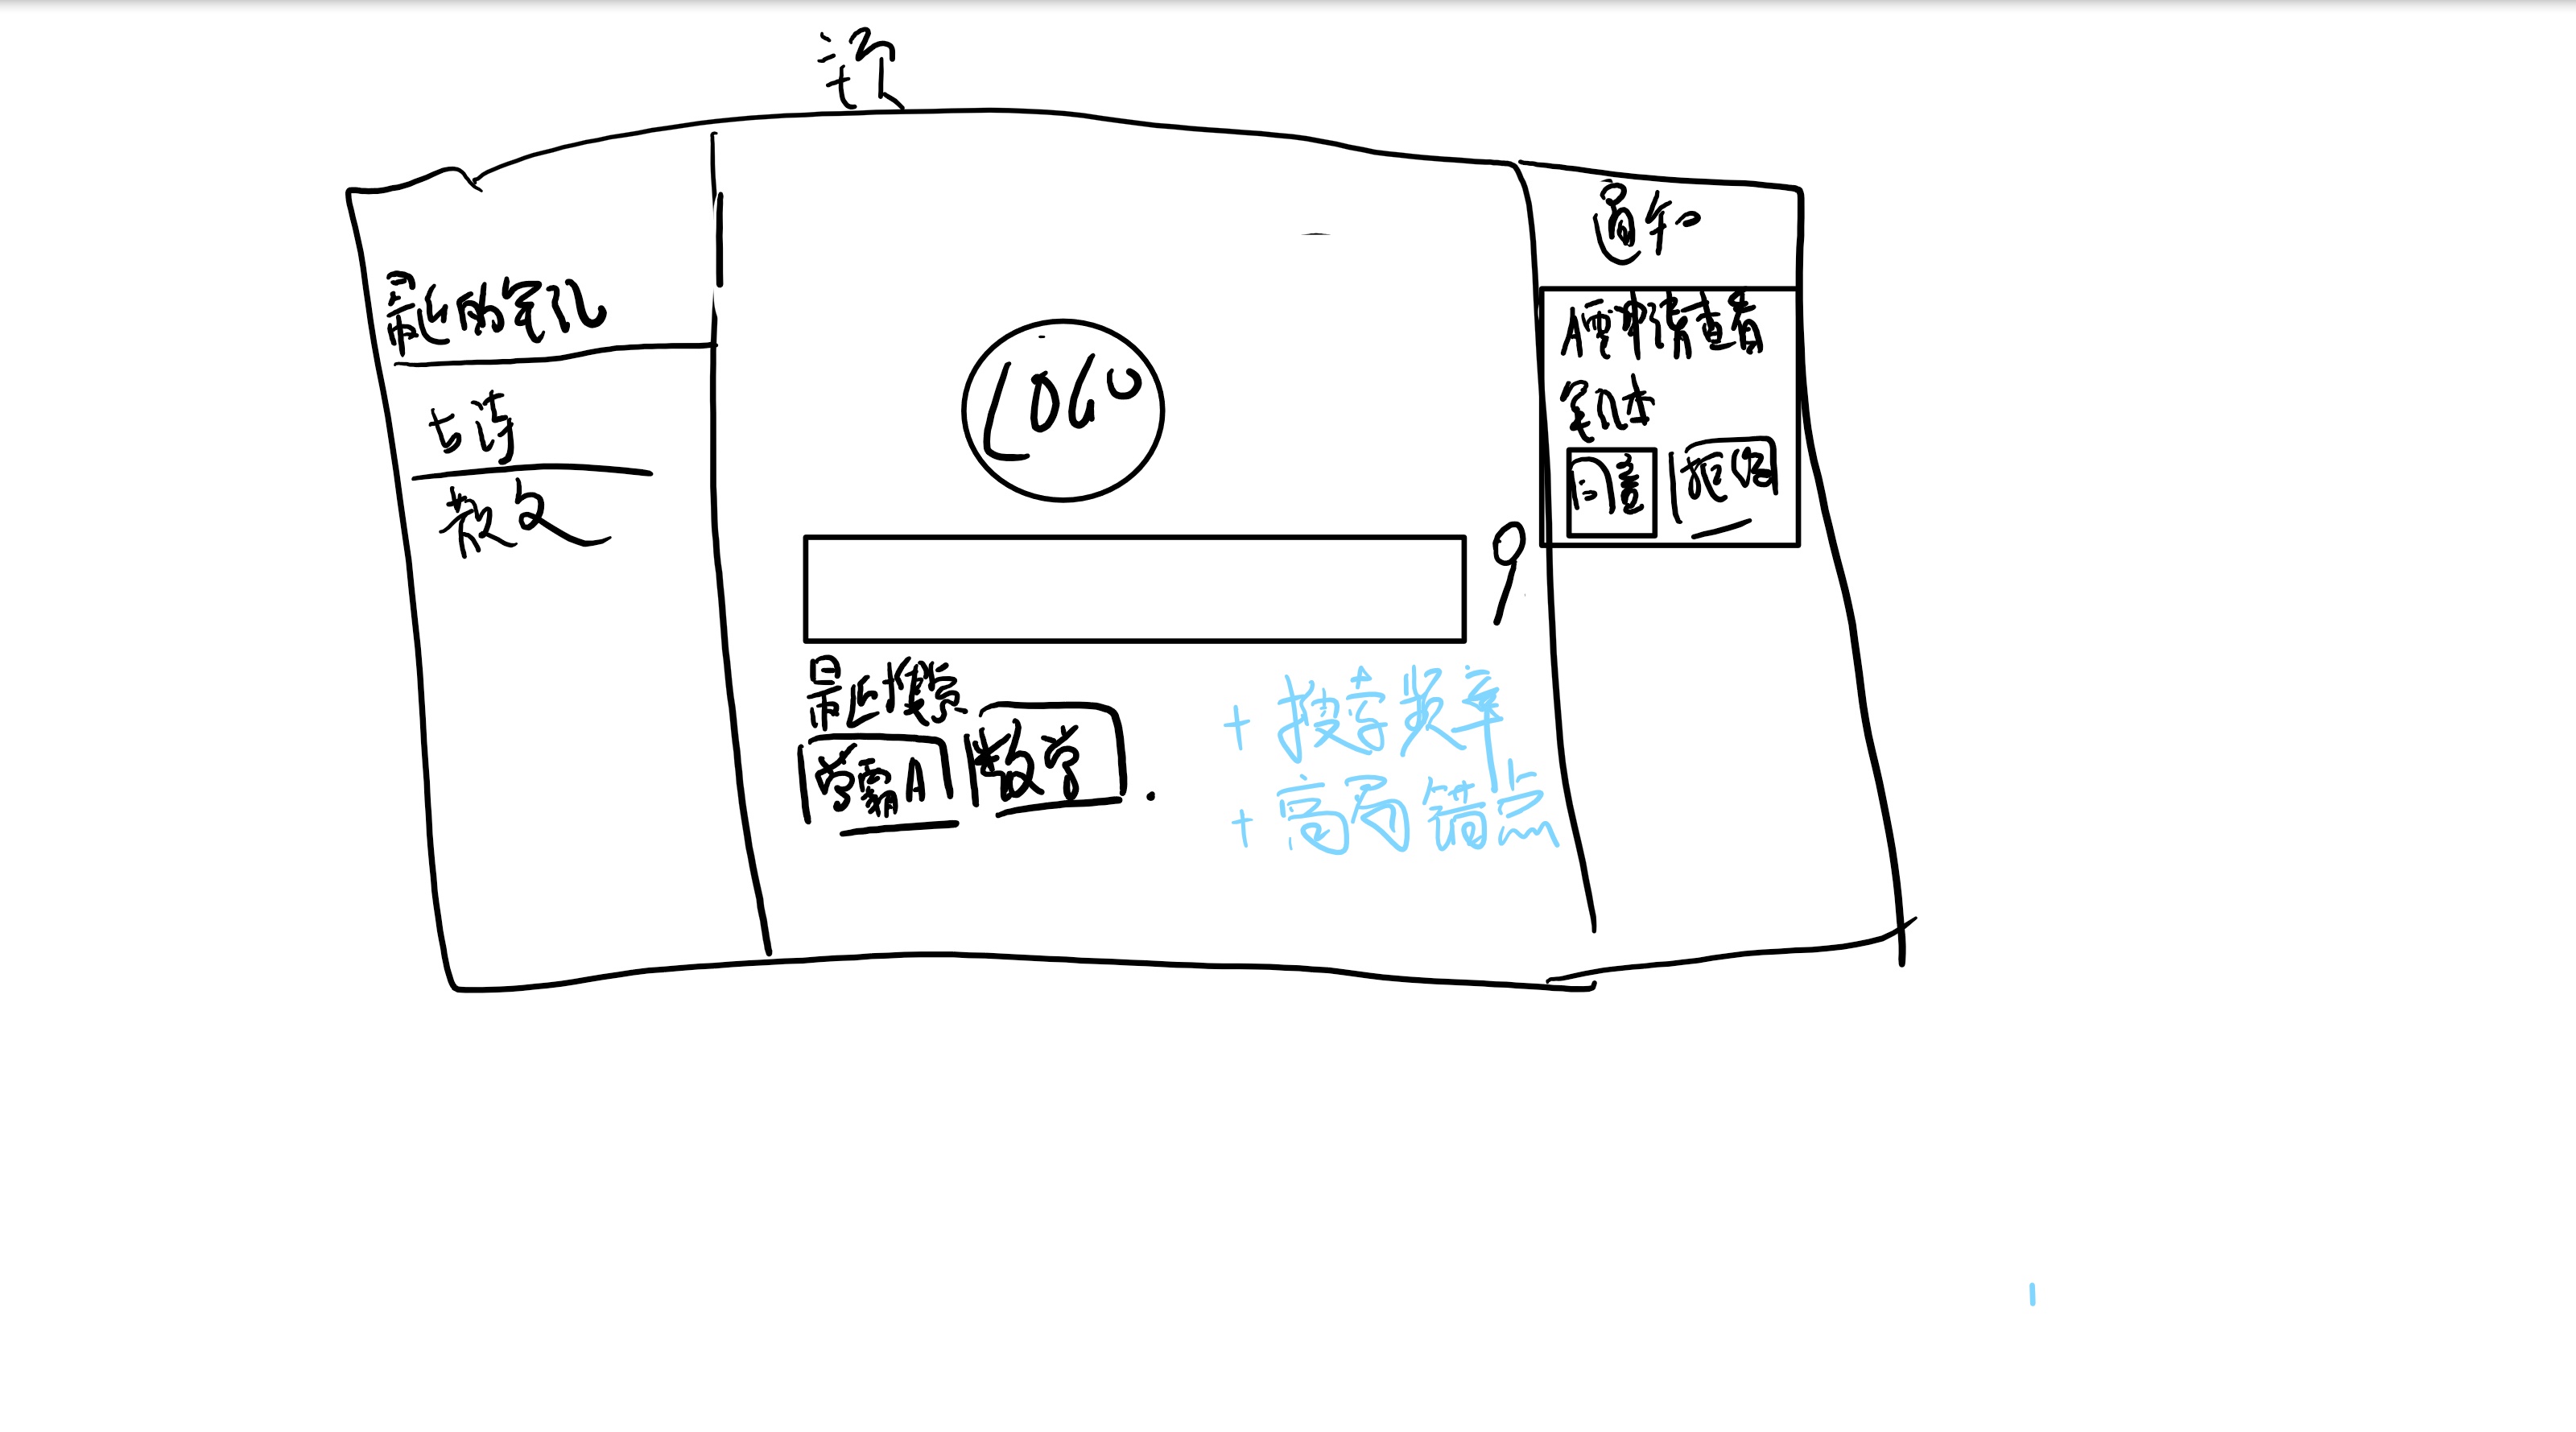 最近的笔记
古诗
散文
LOGO
最近搜索
学霸A
数学
+ 搜索频率
+ 高局锚点
通知
A要申请查看
笔记本
同意
拒绝